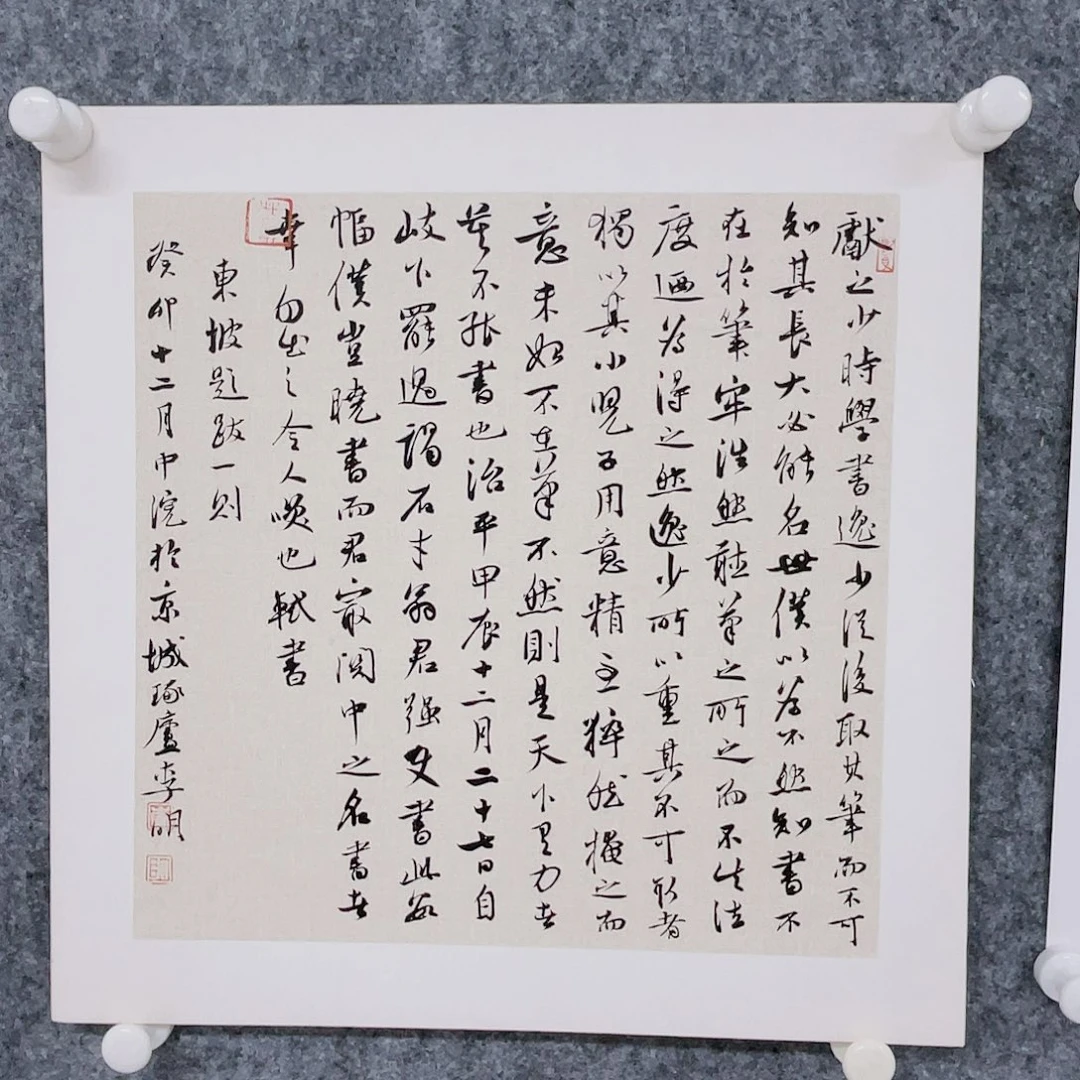 獻之少時學書逸少從後取其筆而不可
知其長大必能名世僕以為不然知書不
在於筆牢浩然聽筆之所之而不失法
度迺為得之然逸少所以重其不可取者
獨以其小兒子用意精至猝然掩之而
意未始不在筆不然則是天下有力者
莫不能書也治平甲辰十二月二十七日自
岐下罷過謁石才翁君強使書此數
幅僕豈曉書而君最關中之名書者
幸勿出之令人笑也軾書
東坡題跋一則
癸卯十二月中浣於京城琢廬李明